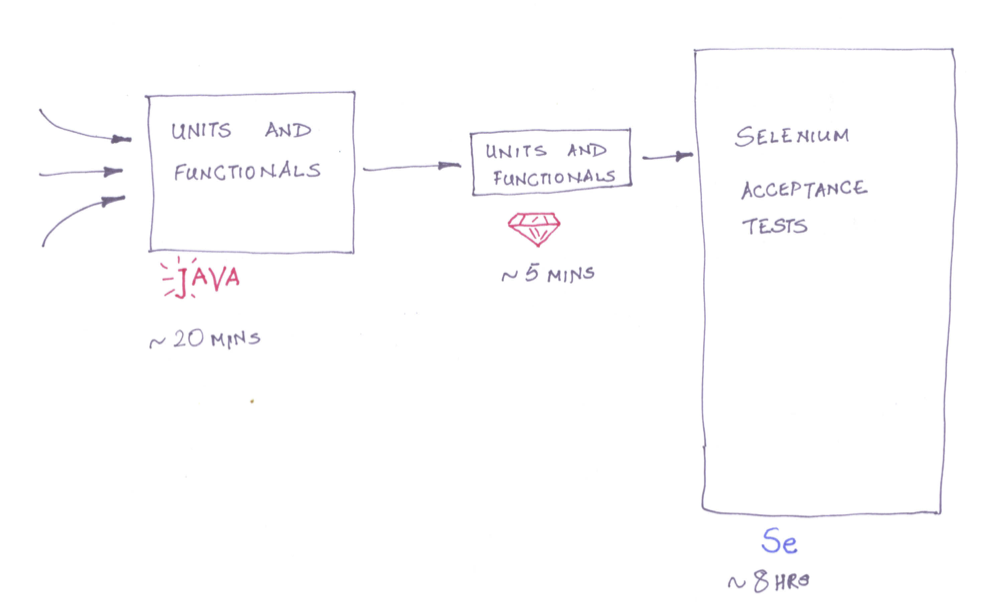 UNITS AND
FUNCTIONALS
JAVA
~ 20 MINS
UNITS AND
FUNCTIONALS
~ 5 MINS
SELENIUM
ACCEPTANCE
TESTS
Se
~ 8 HRS